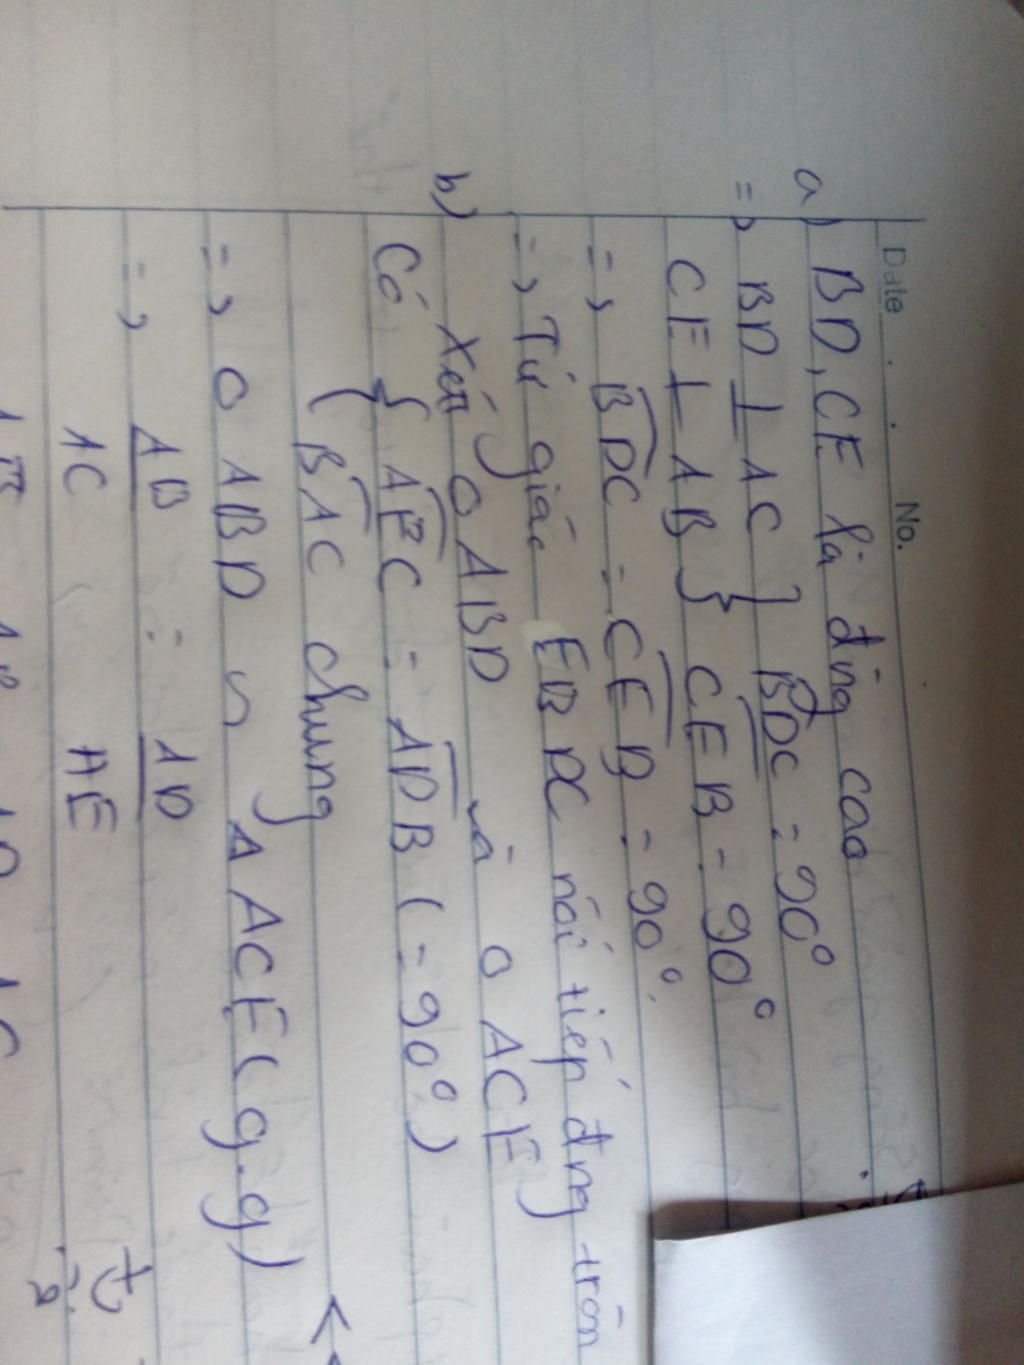 Date No.
a) BD, CE là đng cao
=> BD ⊥ AC } BDC = 90°
CE ⊥ AB } CEB = 90°
=> BDC = CEB = 90°.
=> Tứ giác EBDC nội tiếp đng tròn
b) Xét △ ABD và △ ACE
Có { AEC = ADB ( = 90° )
{ BAC chung
=> △ ABD ∽ △ ACE ( g.g )
=> AB = AD
AC AE